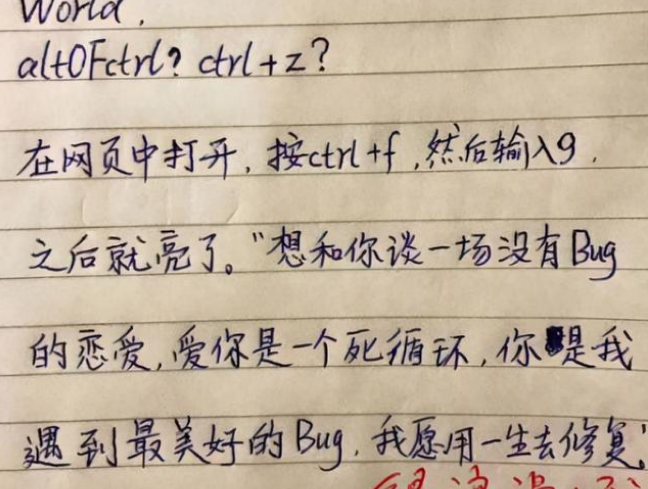 World,
alt0Fctrl? ctrl+z?
在网页中打开,按ctrl+f,然后输入9,
之后就亮了。“想和你谈一场没有Bug
的恋爱,爱你是一个死循环,你是我
遇到最美好的Bug,我愿用一生去修复,”